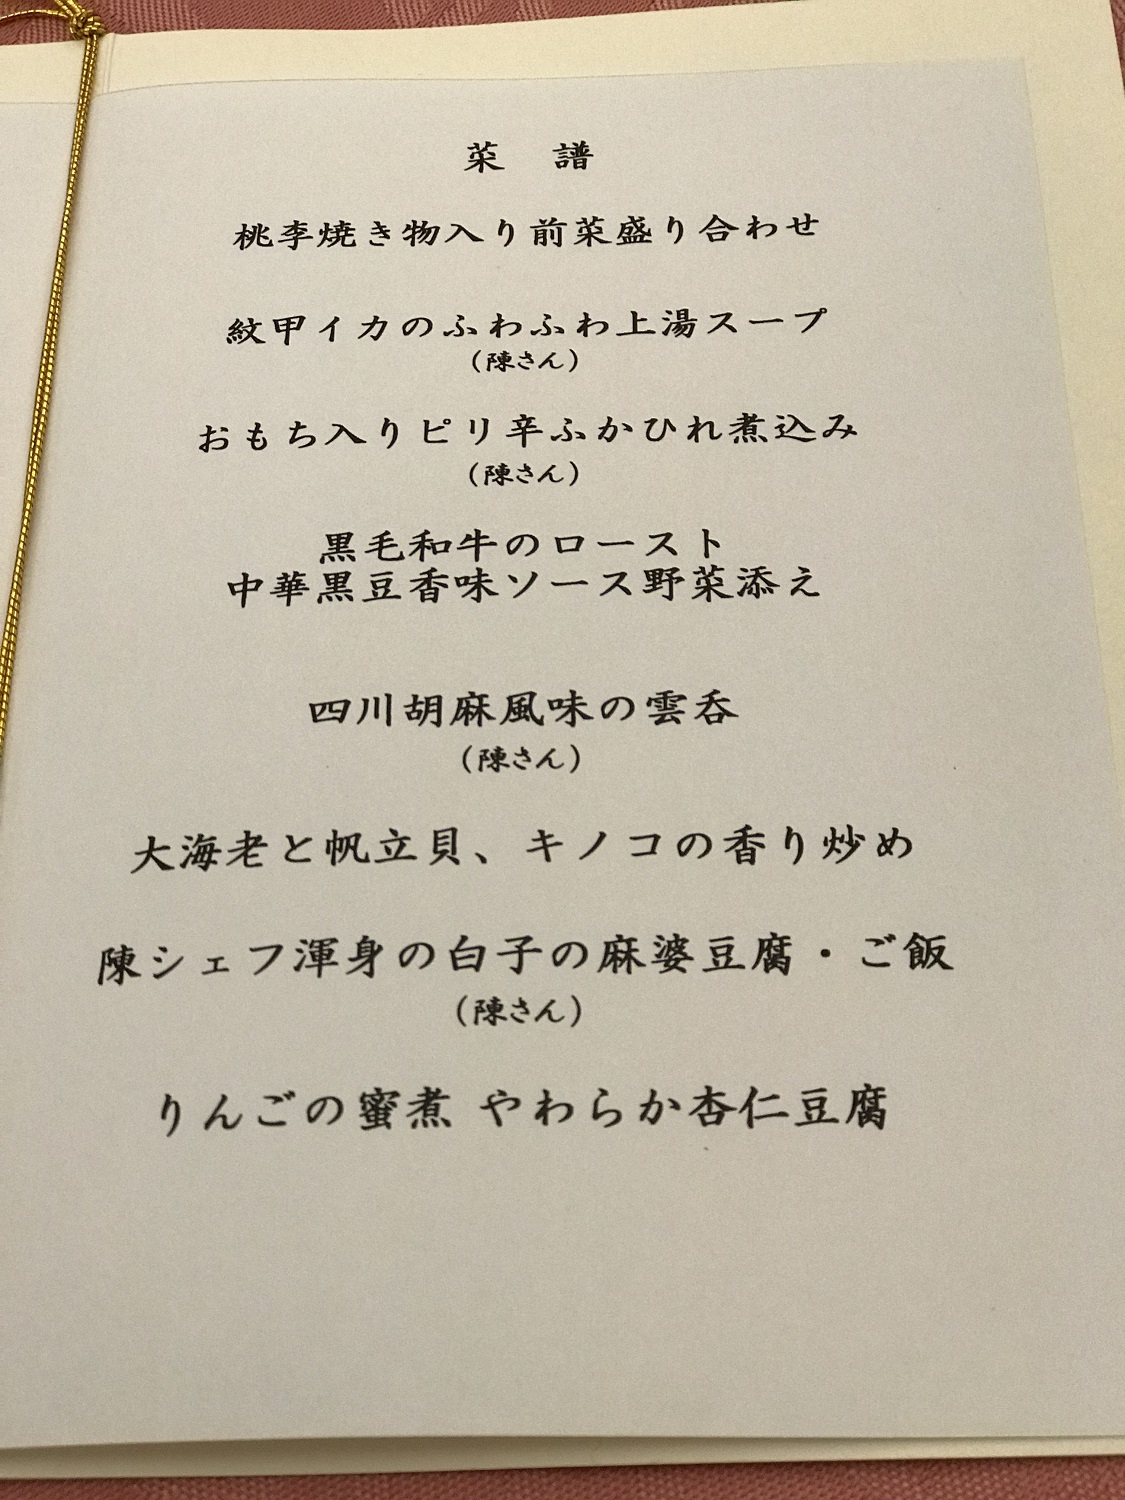 菜　譜
桃李焼き物入り前菜盛り合わせ
紋甲イカのふわふわ上湯スープ
（陳さん）
おもち入りピリ辛ふかひれ煮込み
（陳さん）
黒毛和牛のロースト
中華黒豆香味ソース野菜添え
四川胡麻風味の雲呑
（陳さん）
大海老と帆立貝、キノコの香り炒め
陳シェフ渾身の白子の麻婆豆腐・ご飯
（陳さん）
りんごの蜜煮 やわらか杏仁豆腐